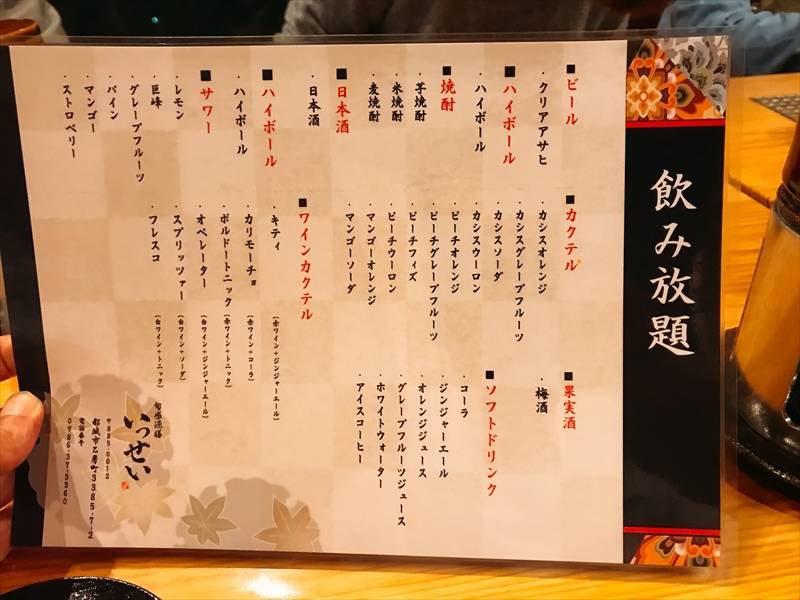 飲み放題
■ビール
・クリアアサヒ
■ハイボール
・ハイボール
■焼酎
・芋焼酎
・米焼酎
・麦焼酎
■日本酒
・日本酒
■ハイボール
・ハイボール
■サワー
・レモン
・巨峰
・グレープフルーツ
・パイン
・マンゴー
・ストロベリー
■カクテル
・カシスオレンジ
・カシスグレープフルーツ
・カシスソーダ
・カシスウーロン
・ピーチオレンジ
・ピーチグレープフルーツ
・ピーチフィズ
・ピーチウーロン
・マンゴーオレンジ
・マンゴーソーダ
■ワインカクテル
・キティ (赤ワイン+ジンジャーエール)
・カリモーチョ (赤ワイン+コーラ)
・ボルドートニック (赤ワイン+トニック)
・オペレーター (白ワイン+ジンジャーエール)
・スプリッツァー (白ワイン+ソーダ)
・フレスコ (白ワイン+トニック)
■果実酒
・梅酒
■ソフトドリンク
・コーラ
・ジンジャーエール
・オレンジジュース
・グレープフルーツジュース
・ホワイトウォーター
・アイスコーヒー
旬感酒膳
いっせい
〒885-0012
都城市上川東町3385-7-2
電話番号
0986-37-3360